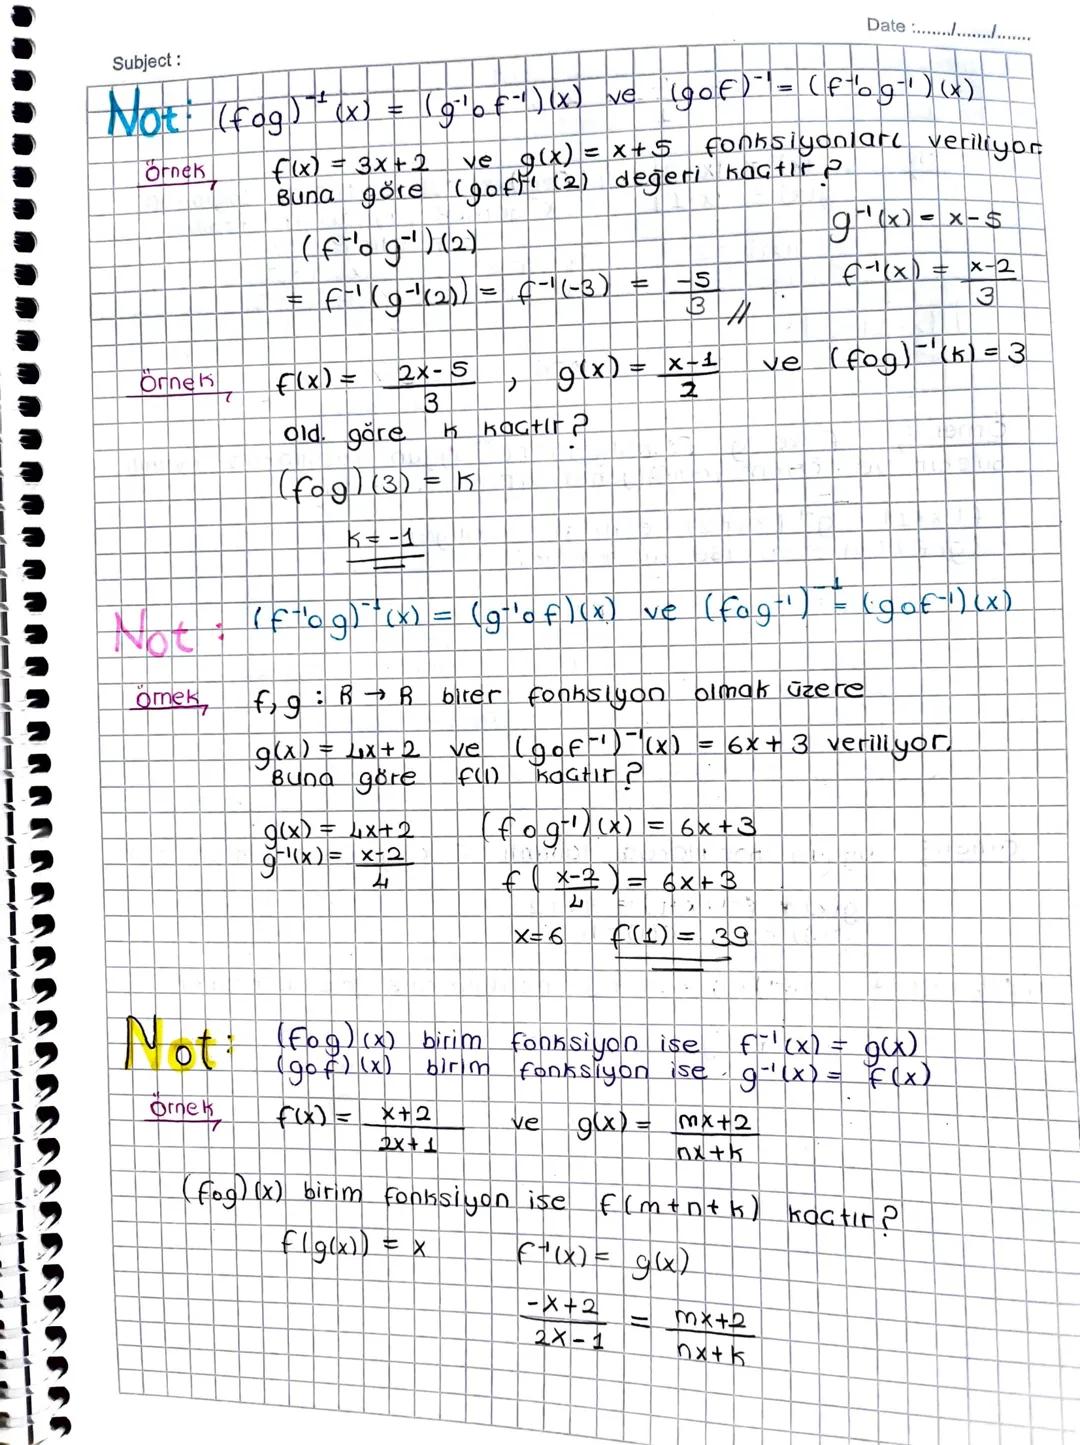 Date :......../......../........
Subject :
Not: (fog)⁻¹(x) = (g⁻¹o f⁻¹)(x) ve (gof)⁻¹ = (f⁻¹o g⁻¹)(x)
Örnek, f(x) = 3x+2 ve g(x) = x+5 fonksiyonları veriliyor.
Buna göre (gof)⁻¹ (2) değeri kaçtır?
g⁻¹(x) = x-5
(f⁻¹o g⁻¹)(2)
f⁻¹(x) = (x-2)/3
= f⁻¹(g⁻¹(2)) = f⁻¹(-3) = -5/3 //
Örnek, f(x) = (2x-5)/3 , g(x) = (x-1)/2 ve (fog)⁻¹(k) = 3
old. göre k kaçtır?
(fog)(3) = k
k = -1
Not: (f⁻¹o g)⁻¹(x) = (g⁻¹o f)(x) ve (fog⁻¹)⁻¹ = (gof⁻¹)(x)
örnek, f,g : R → R birer fonksiyon olmak üzere
g(x) = 4x+2 ve (gof⁻¹)⁻¹(x) = 6x+3 veriliyor.
Buna göre f(1) kaçtır?
g(x) = 4x+2 (fog⁻¹)(x) = 6x+3
g⁻¹(x) = (x-2)/4
f((x-2)/4) = 6x+3
x=6 f(1) = 39
Not: (fog)(x) birim fonksiyon ise f⁻¹(x) = g(x)
(gof)(x) birim fonksiyon ise g⁻¹(x) = f(x)
örnek, f(x) = (x+2)/(2x+1) ve g(x) = (mx+2)/(nx+k)
(fog)(x) birim fonksiyon ise f(m+n+k) kaçtır?
f(g(x)) = x f⁻¹(x) = g(x)
(-x+2)/(2x-1) = (mx+2)/(nx+k)